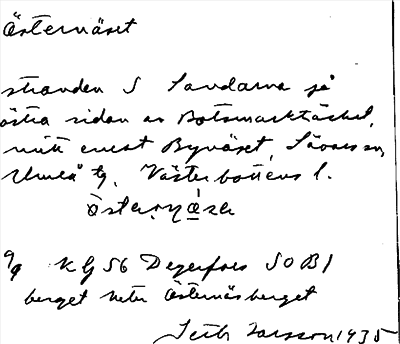 Östernäset
stranden S Sandarna på
östra sidan av Botsmarkträsket,
mitt emot Bynäset, Sävars sn,
Umeå tg, Västerbottens l.
KG 56 Degerfors SO B1
berget heter Östernäsberget
Seth Larsson 1935